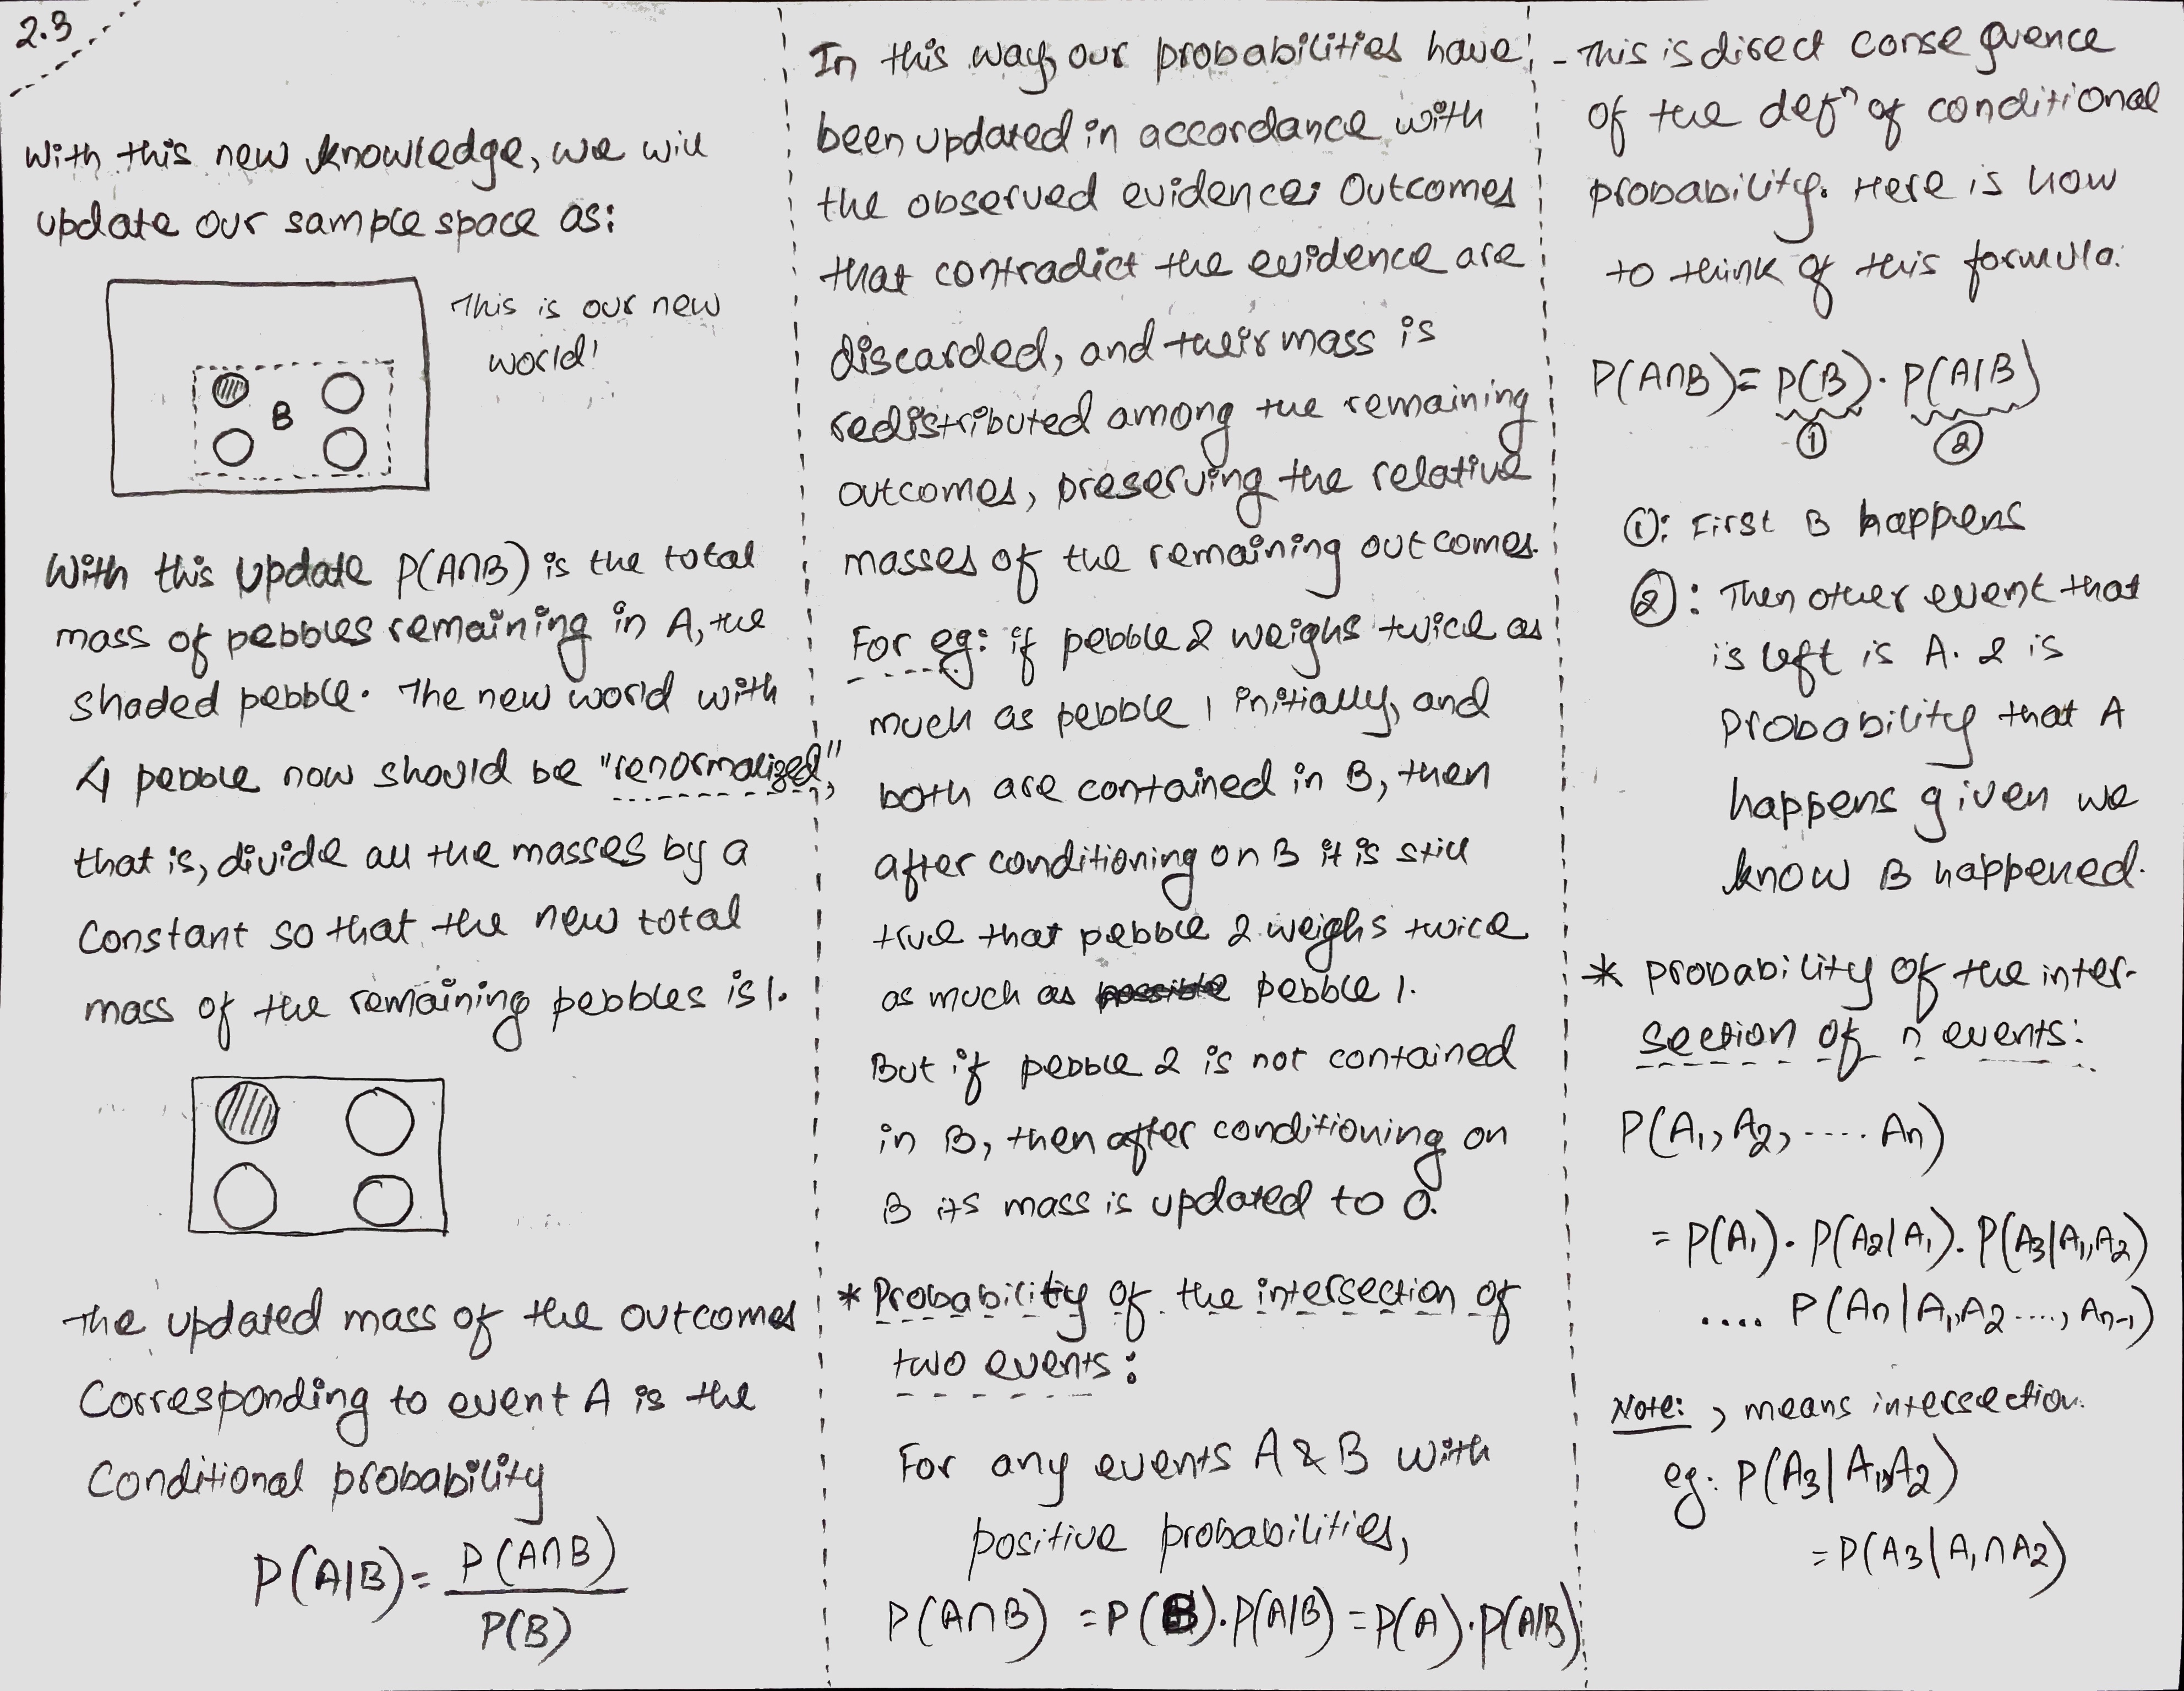 2.3
With this new knowledge, we will
update our sample space as:
This is our new
world!
B
With this update P(A∩B) is the total
mass of pebbles remaining in A, the
shaded pebble. The new world with
4 pebble now should be "renormalized,"
that is, divide all the masses by a
constant so that the new total
mass of the remaining pebbles is 1.
The updated mass of the outcomes
Corresponding to event A is the
Conditional probability
P(A|B) = P(A∩B)
P(B)
In this way, our probabilities have
been updated in accordance with
the observed evidence: Outcomes
that contradict the evidence are
discarded, and their mass is
redistributed among the remaining
outcomes, preserving the relative
masses of the remaining outcomes.
For eg: if pebble 2 weighs twice as
much as pebble 1 initially, and
both are contained in B, then
after conditioning on B it is still
true that pebble 2 weighs twice
as much as possible pebble 1.
But if pebble 2 is not contained
in B, then after conditioning on
B its mass is updated to 0.
* Probability of the intersection of
two events:
For any events A & B with
positive probabilities,
P(A∩B) = P(B).P(A|B) = P(A).P(A|B)
- This is direct consequence
of the defⁿ of conditional
probability. Here is how
to think of this formula:
P(A∩B) = P(B) . P(A|B)
① ②
①: First B happens
②: Then other event that
is left is A. 2 is
probability that A
happens given we
know B happened.
* probability of the inter-
section of n events:
P(A₁, A₂, .... An)
= P(A₁). P(A₂|A₁). P(A₃|A₁,A₂)
.... P(An|A₁,A₂ ...., An-1)
Note: , means intersection.
eg: P(A₃|A₁,A₂)
= P(A₃|A₁∩A₂)